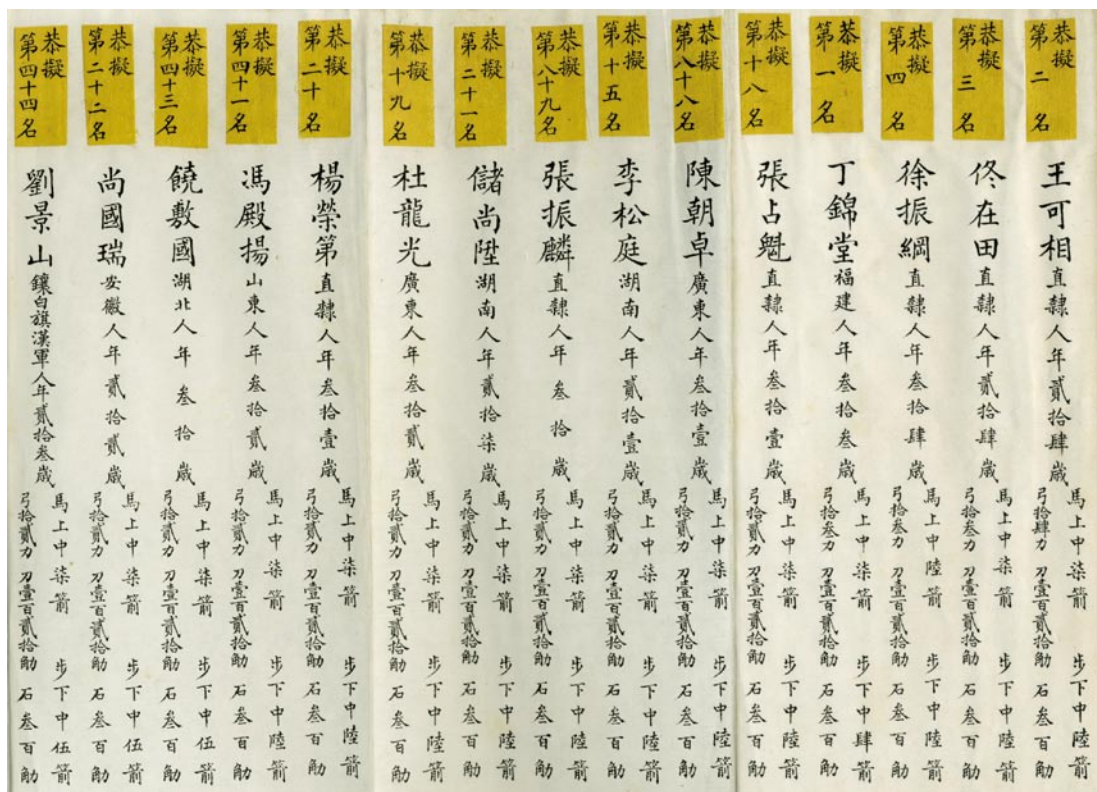 恭擬
第二名
王可相直隸人年貳拾肆歲
馬上中柒箭 步下中陸箭
弓拾肆力 刀壹百貳拾觔 石叁百觔
恭擬
第三名
佟在田直隸人年貳拾肆歲
馬上中柒箭 步下中陸箭
弓拾叁力 刀壹百貳拾觔 石叁百觔
恭擬
第四名
徐振綱直隸人年叁拾肆歲
馬上中陸箭 步下中陸箭
弓拾叁力 刀壹百貳拾觔 石叁百觔
恭擬
第一名
丁錦堂福建人年叁拾叁歲
馬上中柒箭 步下中肆箭
弓拾叁力 刀壹百貳拾觔 石叁百觔
恭擬
第十八名
張占魁直隸人年叁拾壹歲
馬上中柒箭 步下中陸箭
弓拾貳力 刀壹百貳拾觔 石叁百觔
恭擬
第八十八名
陳朝卓廣東人年叁拾壹歲
馬上中柒箭 步下中陸箭
弓拾貳力 刀壹百貳拾觔 石叁百觔
恭擬
第十五名
李松庭湖南人年貳拾壹歲
馬上中柒箭 步下中陸箭
弓拾貳力 刀壹百貳拾觔 石叁百觔
恭擬
第八十九名
張振麟直隸人年叁拾歲
馬上中柒箭 步下中陸箭
弓拾貳力 刀壹百貳拾觔 石叁百觔
恭擬
第二十一名
儲尚陞湖南人年貳拾柒歲
馬上中柒箭 步下中陸箭
弓拾貳力 刀壹百貳拾觔 石叁百觔
恭擬
第十九名
杜龍光廣東人年叁拾貳歲
馬上中柒箭 步下中陸箭
弓拾貳力 刀壹百貳拾觔 石叁百觔
恭擬
第二十名
楊榮第直隸人年叁拾壹歲
馬上中柒箭 步下中陸箭
弓拾貳力 刀壹百貳拾觔 石叁百觔
恭擬
第四十一名
馮殿揚山東人年叁拾貳歲
馬上中柒箭 步下中陸箭
弓拾貳力 刀壹百貳拾觔 石叁百觔
恭擬
第四十三名
饒敷國湖北人年叁拾歲
馬上中柒箭 步下中伍箭
弓拾貳力 刀壹百貳拾觔 石叁百觔
恭擬
第二十二名
尚國瑞安徽人年貳拾貳歲
馬上中柒箭 步下中伍箭
弓拾貳力 刀壹百貳拾觔 石叁百觔
恭擬
第四十四名
劉景山鑲白旗漢軍人年貳拾叁歲
馬上中柒箭 步下中伍箭
弓拾貳力 刀壹百貳拾觔 石叁百觔